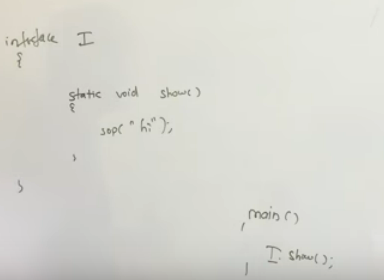 interface I
{
static void show()
{
sop("hi");
}
}
main()
{
I.show();
}